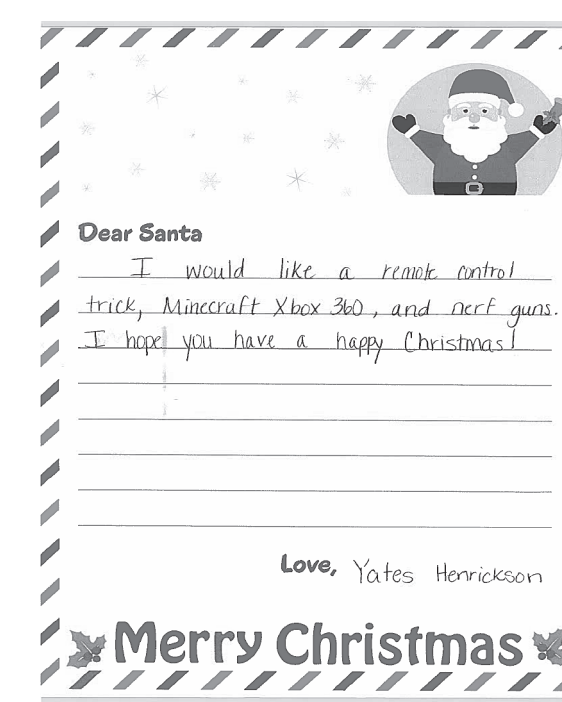 Dear Santa
I would like a remote control
trick, Minecraft Xbox 360, and nerf guns.
I hope you have a happy Christmas!
Love, Yates Henrickson
Merry Christmas